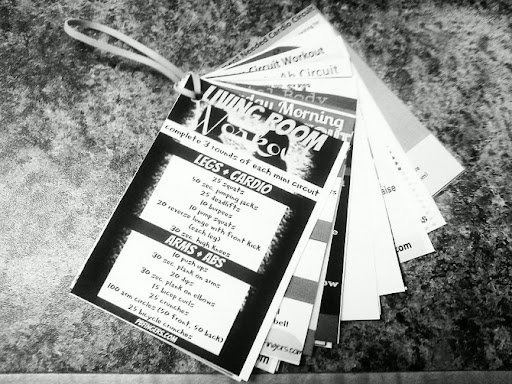 Needed Cardio Circuit
Circuit Workout
Ab Circuit
Body
Morning
LIVING ROOM
Workout
complete 3 rounds of each mini circuit
LEGS + CARDIO
25 squats
50 sec. jumping jacks
25 deadlifts
10 burpees
10 jump squats
20 reverse lunge with front kick
(each leg)
30 sec. high knees
ARMS + ABS
10 push ups
30 sec. plank on arms
20 dips
30 sec. plank on elbows
15 bicep curls
25 crunches
100 arm circles (50 front, 50 back)
25 bicycle crunches
bell
.com